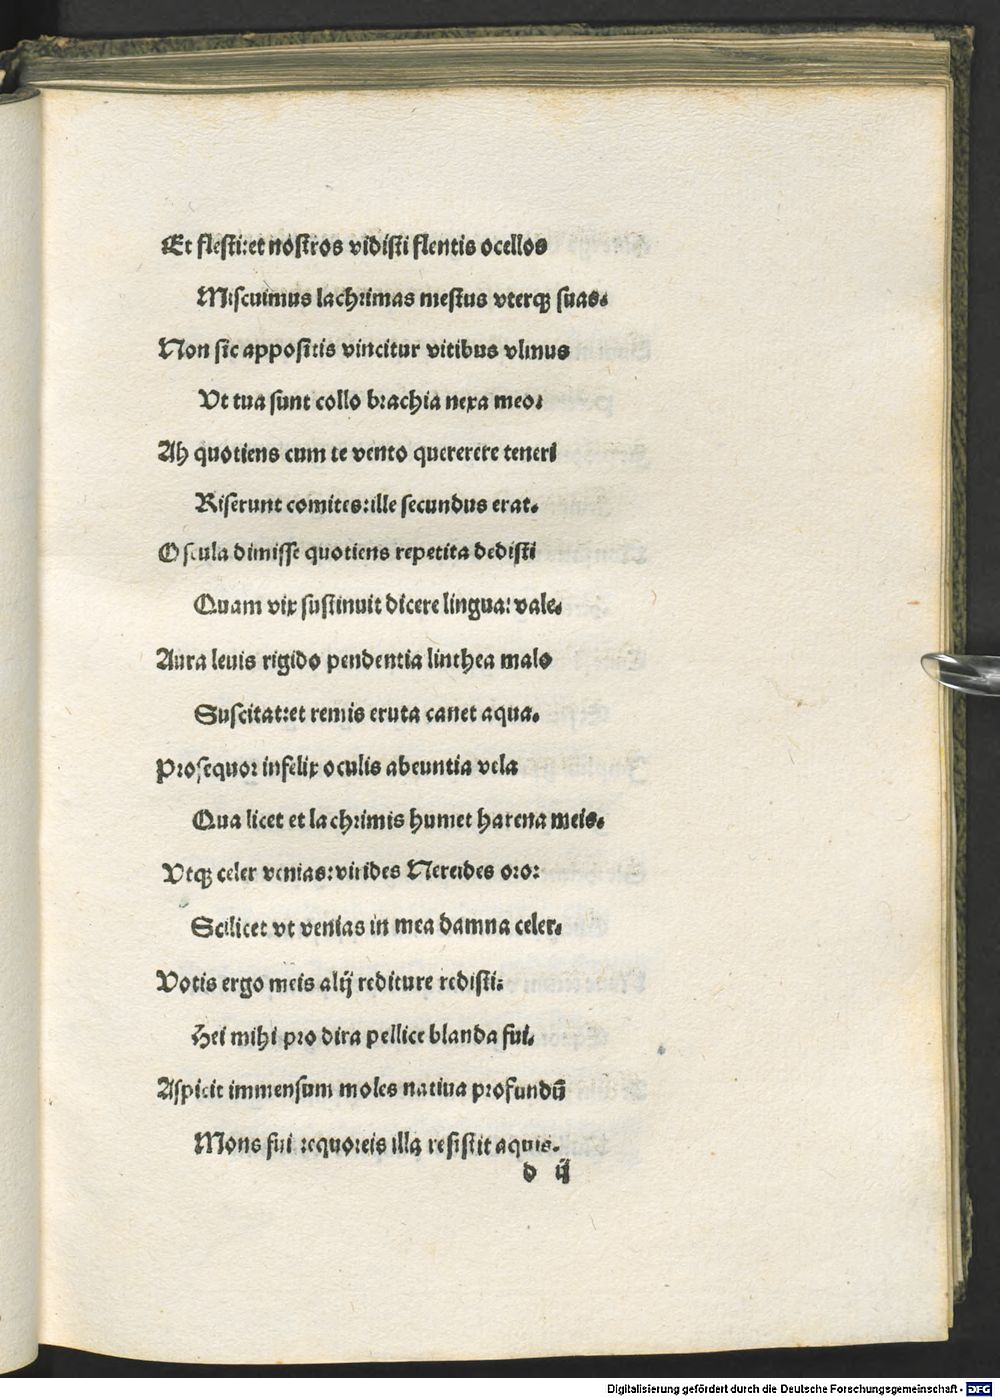 Et flesti:et nostros vidisti flentis ocellos
Miscuimus lachrimas mestus vterqꝫ suas.
Non sic appositis vincitur vitibus vlmus
Vt tua sunt collo brachia nexa meo:
Ah quotiens cum te vento quererere teneri
Riserunt comites:ille secundus erat.
Oscula dimisse quotiens repetita dedisti
Quam vix sustinuit dicere lingua:vale.
Aura leuis rigido pendentia linthea malo
Suscitat:et remis eruta canet aqua.
Prosequor infelix oculis abeuntia vela
Qua licet et lachrimis humet harena meis.
Vtqꝫ celer venias:virides Nereides oro:
Scilicet vt venias in mea damna celer.
Votis ergo meis alij rediture redisti:
Hei mihi pro dira pellice blanda fui.
Aspicit immensum moles natiua profundū
Mons fui :equoreis illa resistit aquis.
d ij
Digitalisierung gefördert durch die Deutsche Forschungsgemeinschaft - DFG